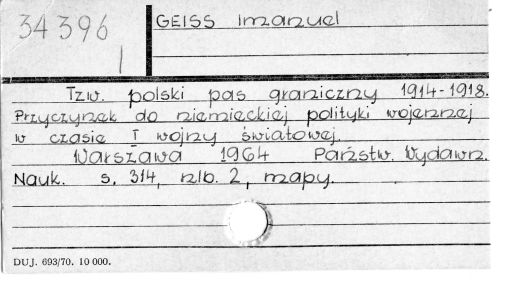 34396
I
GEISS Imanuel
Tzw. polski pas graniczny 1914-1918.
Przyczynek do niemieckiej polityki wojennej
w czasie I wojny światowej.
Warszawa 1964 Państw. Wydawn.
Nauk. s. 314, nlb. 2, mapy.
DUJ. 693/70. 10 000.